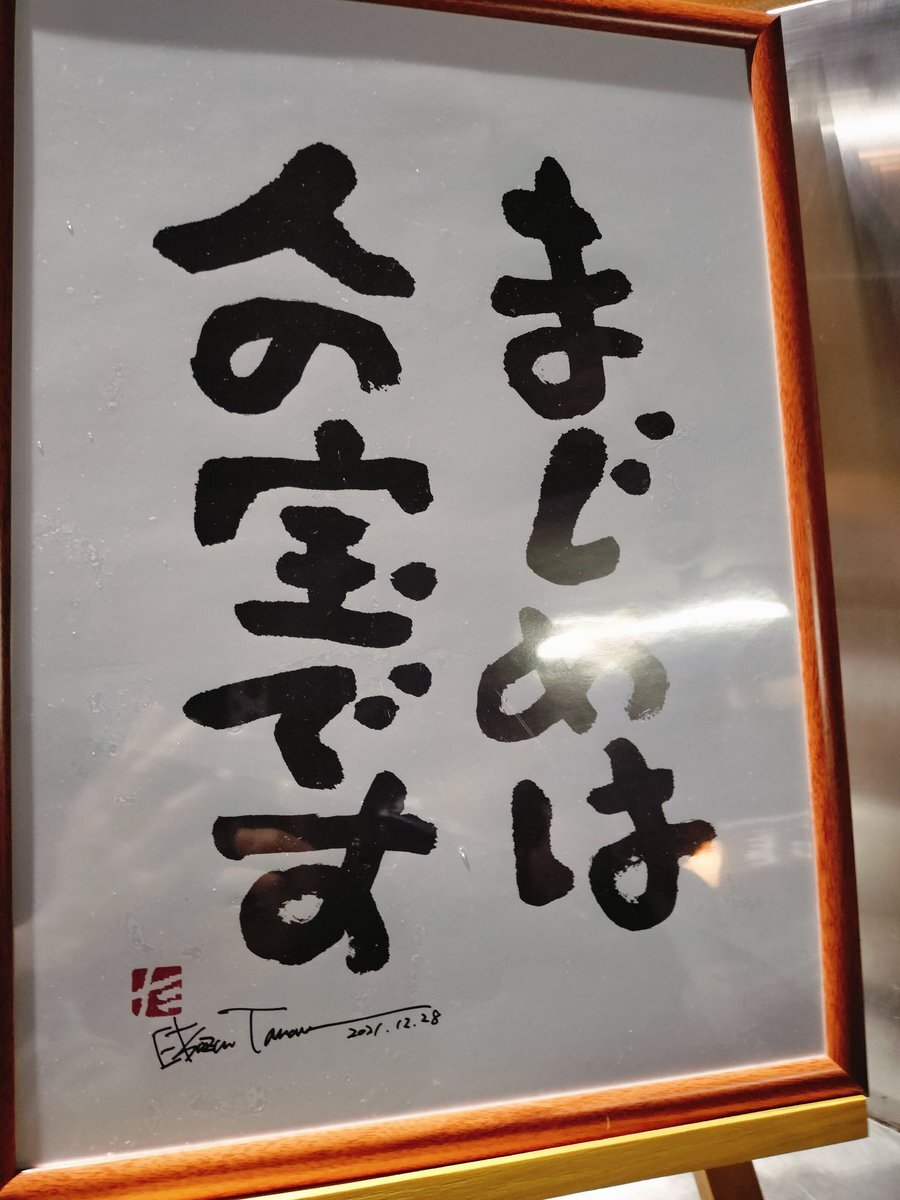 まじめは
人の宝です
2021.12.28